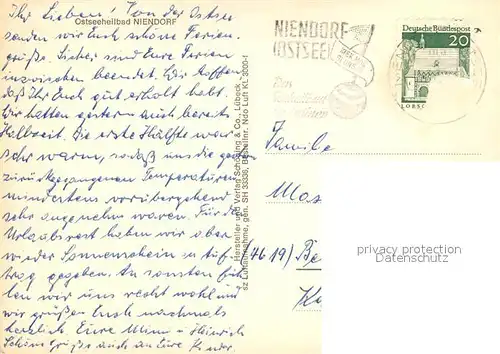 Ostseeheilbad NIENDORF
Ihr Lieben! Von der Ostsee
senden wir Euch schöne Ferien-
grüße. Sicher sind Eure Ferien
inzwischen beendet. Wir hoffen
daß Ihr Euch gut erholt habt.
Wir hatten gestern auch bereits
Halbzeit. Die erste Hälfte war
sehr warm, sodaß uns die gestern
zurückgegangenen Temperaturen
mindestens vorübergehend
sehr angenehm waren. Für d.
Urlaubsrest haben wir aber
wieder Sonnenschein in Auf-
trag gegeben. Ansonsten füh-
len wir uns recht wohl und
wir grüßen Euch nochmals
herzlich Eure Mimi u. Heinrich
Schöne Grüße auch an Eure Kinder.
Hersteller und Verlag Schöning & Co., Lübeck
sz Luftaufnahme, gen. SH 33336, Bestellnr. Ndo Luft Kl. 3000-f
NIENDORF
(OSTSEE)
Deutsche Bundespost
20
LORSC
Familie
Mos
(4619) Be
K
privacy protection
Datenschutz